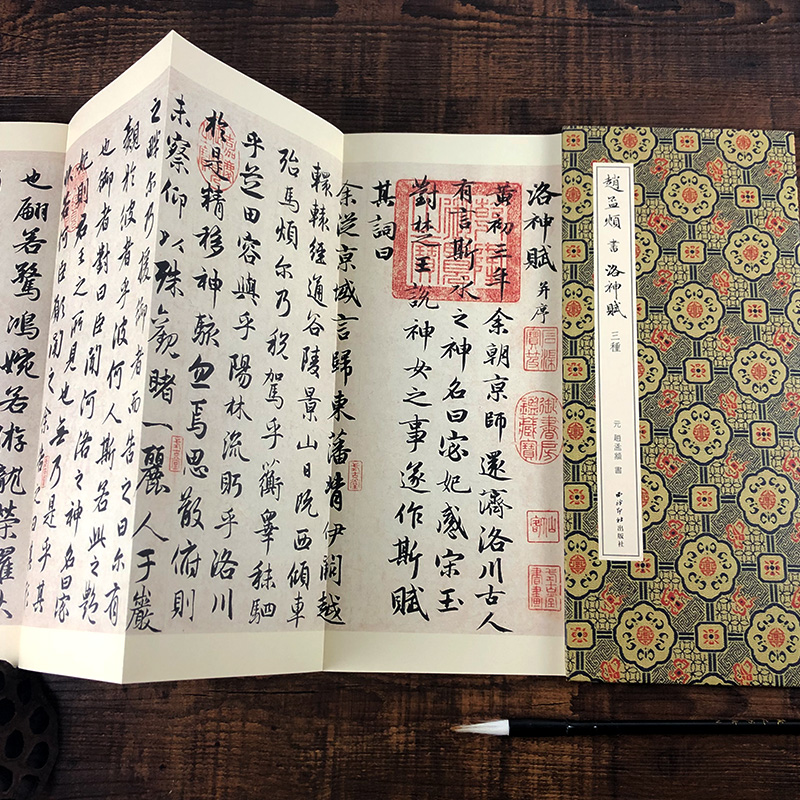 趙孟頫書 洛神賦 三種
元 趙孟頫 書
西泠印社出版社
洛神賦 并序
黃初三年余朝京師還濟洛川古人
有言斯水之神名曰宓妃感宋玉
對楚王說神女之事遂作斯賦
其詞曰
余從京域言歸東藩背伊闕越
轘轅經通谷陵景山日既西傾車
殆馬煩尔乃稅駕乎蘅皋秣駟
乎芝田容與乎陽林流眄乎洛川
於是精移神駭忽焉思散俯則
未察仰以殊觀睹一麗人于巖
之畔尔乃援御者而告之曰尔有
覿於彼者乎彼何人斯若此之艷
也御者對曰臣聞河洛之神名曰宓
妃則君王之所見也無乃是乎其
狀若何臣願聞之余告之曰其
也翩若驚鴻婉若游龍榮曜
石渠寶笈
御書房鑑藏寶